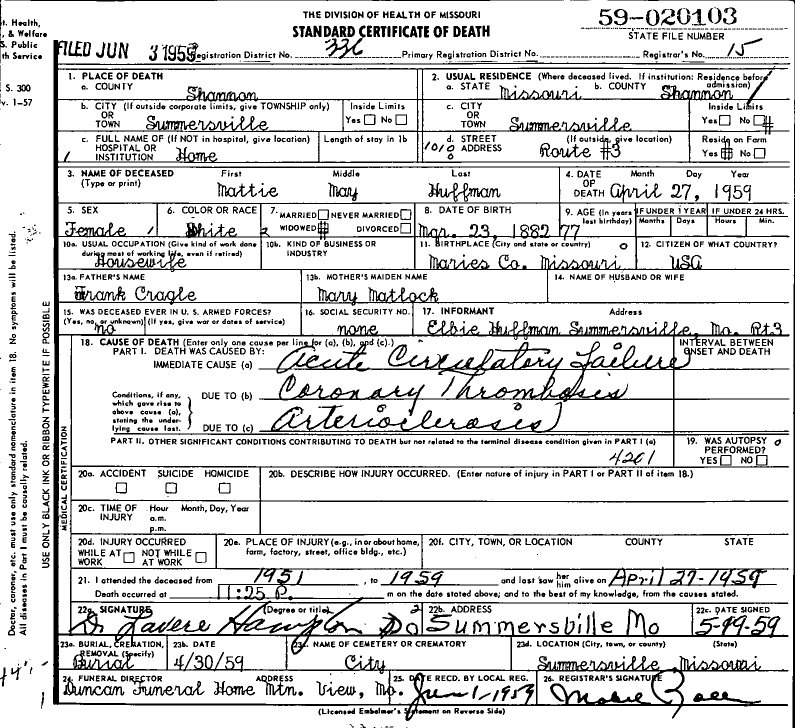 THE DIVISION OF HEALTH OF MISSOURI
STANDARD CERTIFICATE OF DEATH
59-020103
STATE FILE NUMBER
t. Health,
, & Welfare
S. Public
th Service
FILED JUN 3 1959 Registration District No. 336 Primary Registration District No. Registrar's No. 15
S. 300
v. 1-57
1. PLACE OF DEATH
a. COUNTY Shannon
2. USUAL RESIDENCE (Where deceased lived. If institution: Residence before admission)
a. STATE Missouri b. COUNTY Shannon
b. CITY (If outside corporate limits, give TOWNSHIP only) OR TOWN Summersville
Inside Limits Yes No
c. CITY OR TOWN Summersville
Inside Limits Yes No
c. FULL NAME OF (If NOT in hospital, give location) HOSPITAL OR INSTITUTION Home
Length of stay in 1b
d. STREET ADDRESS (If outside, give location) Route #3
Reside on Farm Yes No
3. NAME OF DECEASED (Type or print) First Middle Last
Mattie May Huffman
4. DATE OF DEATH Month Day Year
April 27, 1959
5. SEX Female
6. COLOR OR RACE White
7. MARRIED NEVER MARRIED WIDOWED DIVORCED
8. DATE OF BIRTH Mar. 23, 1882
9. AGE (In years last birthday) 77
IF UNDER 1 YEAR Months Days
IF UNDER 24 HRS. Hours Min.
10a. USUAL OCCUPATION (Give kind of work done during most of working life, even if retired) Housewife
10b. KIND OF BUSINESS OR INDUSTRY
11. BIRTHPLACE (City and state or country) Maries Co. Missouri
12. CITIZEN OF WHAT COUNTRY? USA
13a. FATHER'S NAME Frank Cragle
13b. MOTHER'S MAIDEN NAME Mary Matlock
14. NAME OF HUSBAND OR WIFE
15. WAS DECEASED EVER IN U. S. ARMED FORCES? (Yes, no, or unknown) (If yes, give war or dates of service) no
16. SOCIAL SECURITY NO. none
17. INFORMANT Address
Elbie Huffman Summersville, Mo. Rt3
18. CAUSE OF DEATH (Enter only one cause per line for (a), (b), and (c).)
INTERVAL BETWEEN ONSET AND DEATH
PART I. DEATH WAS CAUSED BY:
IMMEDIATE CAUSE (a) Acute Circulatory Failure
Conditions, if any, which gave rise to above cause (a), stating the underlying cause last.
DUE TO (b) Coronary Thrombosis
DUE TO (c) Arteriosclerosis
PART II. OTHER SIGNIFICANT CONDITIONS CONTRIBUTING TO DEATH but not related to the terminal disease condition given in PART I (a)
4201
19. WAS AUTOPSY PERFORMED? YES NO
20a. ACCIDENT SUICIDE HOMICIDE
20b. DESCRIBE HOW INJURY OCCURRED. (Enter nature of injury in PART I or PART II of item 18.)
20c. TIME OF INJURY Hour Month, Day, Year
a.m.
p.m.
20d. INJURY OCCURRED WHILE AT WORK NOT WHILE AT WORK
20e. PLACE OF INJURY (e.g., in or about home, farm, factory, street, office bldg., etc.)
20f. CITY, TOWN, OR LOCATION COUNTY STATE
21. I attended the deceased from 1951, to 1959 and last saw her him alive on April 27-1959
Death occurred at 11:25 P. m on the date stated above; and to the best of my knowledge, from the causes stated.
22a. SIGNATURE (Degree or title) Dr Lavere Hampton Do
22b. ADDRESS Summersville Mo
22c. DATE SIGNED
23a. BURIAL, CREMATION, REMOVAL (Specify) Burial
23b. DATE 4/30/59
23c. NAME OF CEMETERY OR CREMATORY City
23d. LOCATION (City, town, or county) (State)
Summersville, Missouri
24. FUNERAL DIRECTOR ADDRESS
Duncan Funeral Home Mtn. View, Mo.
25. DATE RECD. BY LOCAL REG. June 1, 1959
26. REGISTRAR'S SIGNATURE
(Licensed Embalmer's Statement on Reverse Side)
Doctor, coroner, etc. must use only standard nomenclature in item 18. No symptoms will be listed.
All diseases in Part I must be causally related.
USE ONLY BLACK INK OR RIBBON TYPEWRITE IF POSSIBLE
MEDICAL CERTIFICATION